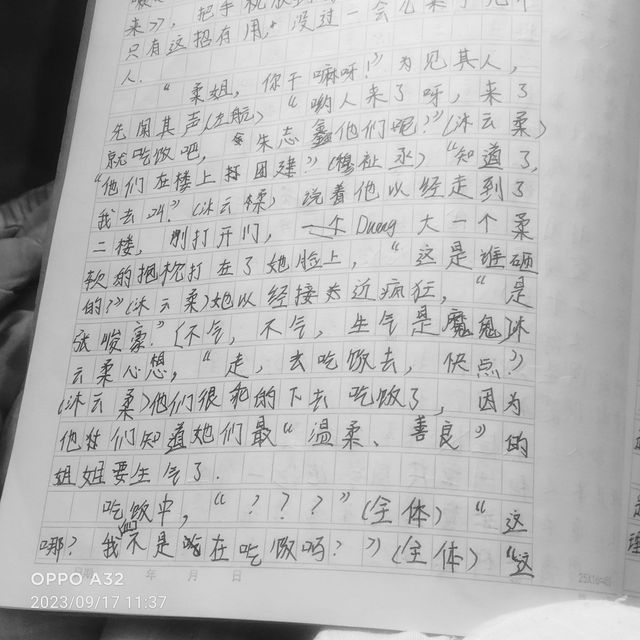 来》，把手机放
只有这招有用，没过一会儿
人.
“柔姐，你干嘛呀？”为见其人，
先闻其声(左航)“哟人来了呀，来了
就吃饭吧，朱志鑫他们呢？”(沐云柔)
“他们在楼上打团建？(穆祉丞)“知道了，
我去叫？”(沐云柔)说着他以经走到了
二楼，刚打开门，一个Duang大一个柔
软的抱枕打在了她脸上，“这是谁砸
的？”(沐云柔)她以经接近疯狂，“是
张峻豪.”(不气，不气，生气是魔鬼沐
云柔心想，“走，去吃饭去，快点》
(沐云柔)他们很乖的下去吃饭了，因为
他们知道她们最“温柔、善良”的
姐姐要生气了.
吃饭中，“？？？”(全体)“这
哪？我们不是在吃饭吗？》(全体)“这
年 月 日
25X16=4
OPPO A32
2023/09/17 11:37